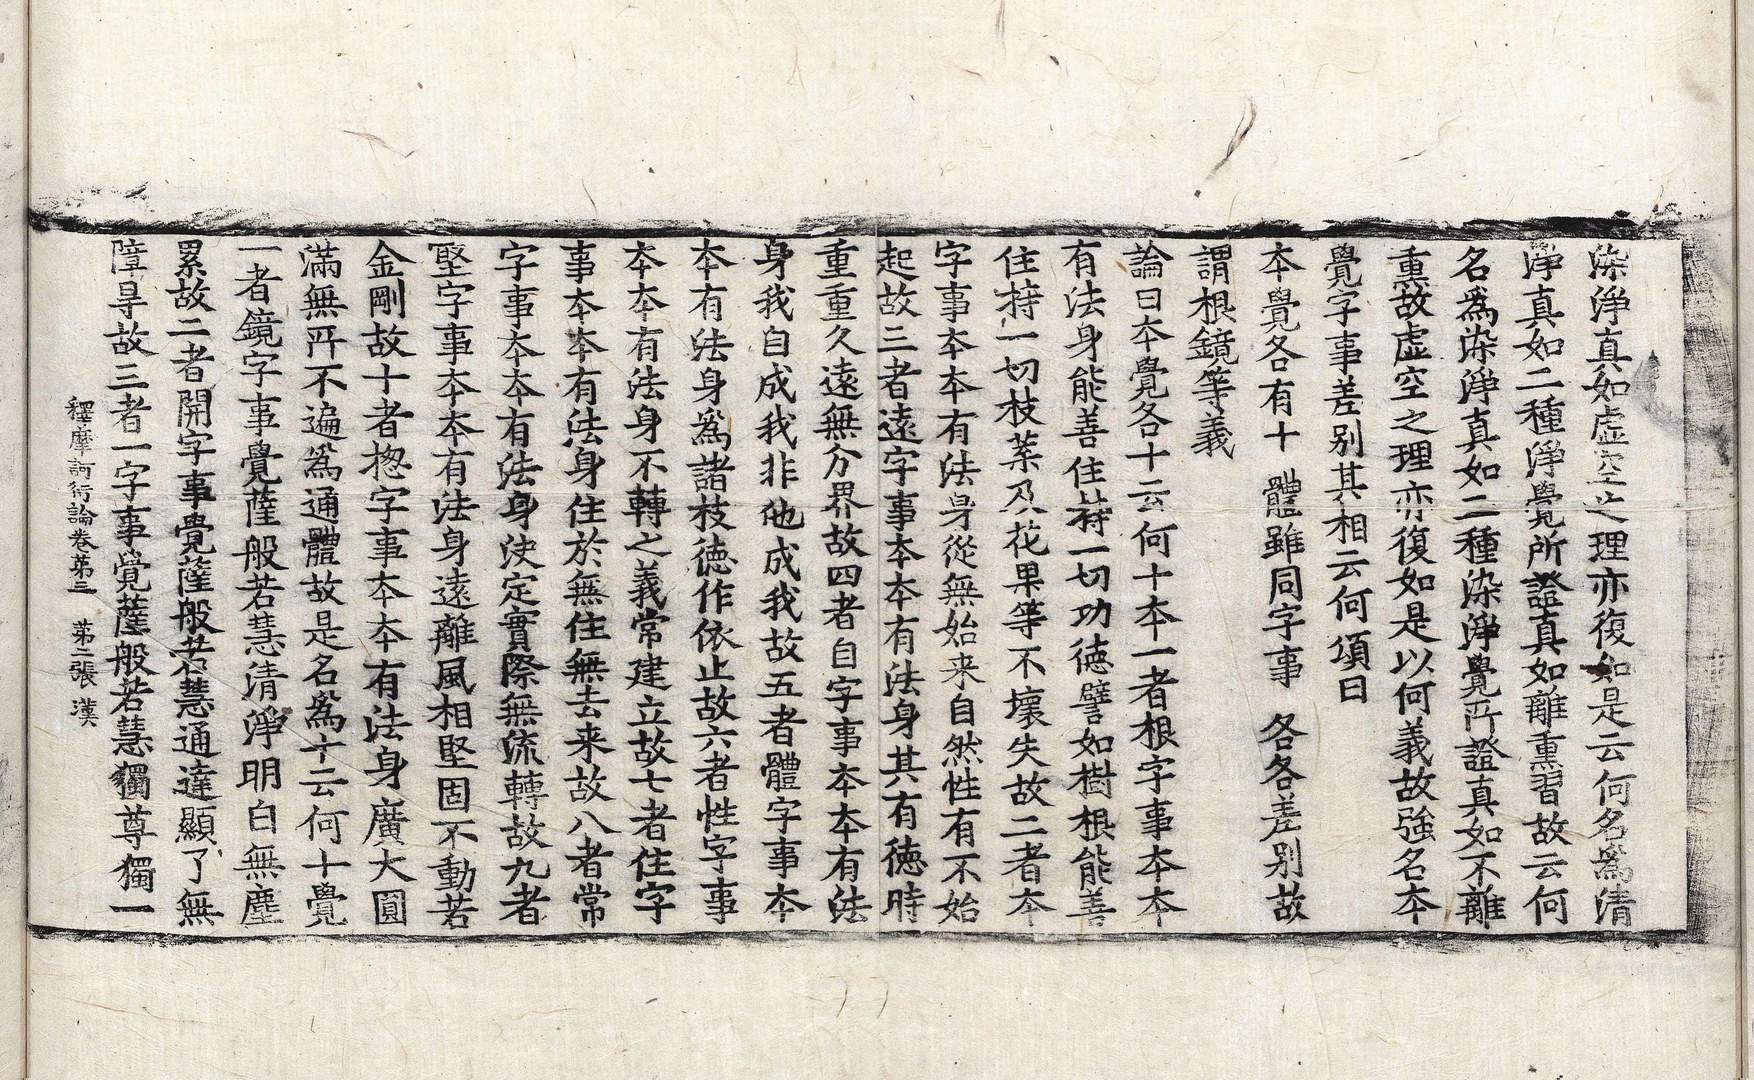 染淨真如虛空之理亦復如是云何名爲清
淨真如二種淨覺所證真如離熏習故云何
名爲染淨真如二種染淨覺所證真如不離
熏故虛空之理亦復如是以何義故強名本
覺字事差別其相云何頌曰
本覺各有十 體雖同字事 各各差別故
謂根鏡等義
論曰本覺各十云何十本一者根字事本本
有法身能善住持一切功德譬如樹根能善
住持一切枝葉及花果等不壞失故二者本
字事本本有法身從無始来自然性有不始
起故三者遠字事本本有法身其有德時
重重久遠無分界故四者自字事本本有法
身我自成我非他成我故五者體字事本
本有法身爲諸枝德作依止故六者性字事
本本有法身不轉之義常建立故七者住字
事本本有法身住於無住無去来故八者常
字事本本有法身決定實際無流轉故九者
堅字事本本有法身遠離風相堅固不動若
金剛故十者揔字事本本有法身廣大圓
滿無所不遍爲通體故是名爲十云何十覺
一者鏡字事覺薩般若慧清淨明白無塵
累故二者開字事覺薩般若慧通達顯了無
障㝵故三者一字事覺薩般若慧獨尊獨一
釋摩訶衍論卷第三 第二張 漢